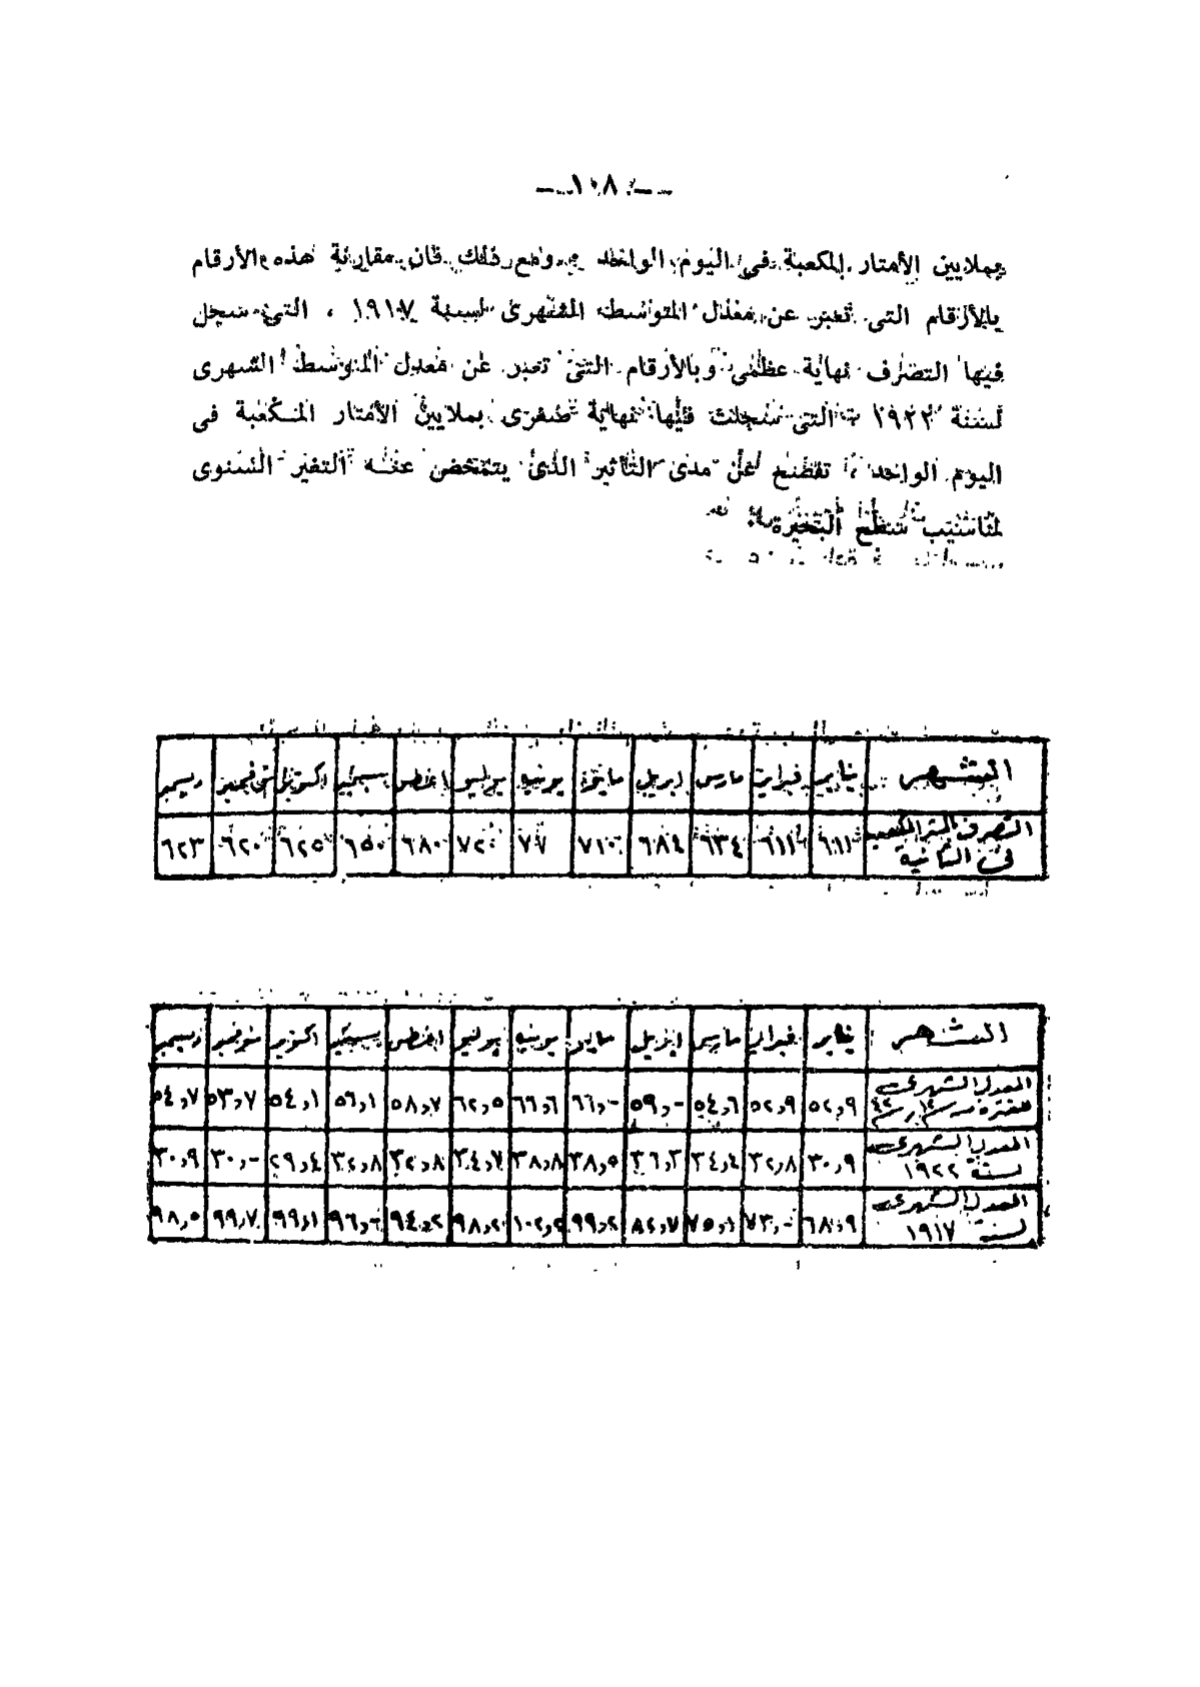 — ١٠٨ —
بملايين الأمتار المكعبة في اليوم الواحد . ومع ذلك فان مقارنة هذه الأرقام
بالأرقام التى تعبر عن معدل المتوسط الشهرى لسنة ١٩١٧ ، التى سجل
فيها التصرف نهاية عظمى وبالأرقام التى تعبر عن معدل المتوسط الشهرى
لسنة ١٩٢٢ التى سجلت فيها نهاية صغرى بملايين الأمتار المكعبة فى
اليوم الواحد ، تقطع عن مدى التأثير الذى يتمخض عنه التغير السنوى
لمناسيب سطح البحيرة .
الشهر يناير فبراير مارس ابريل مايو يونيه يوليو اغسطس سبتمبر اكتوبر نوفمبر ديسمبر
التصرف بالمتر المكعب فى الثانية ٦١١ ٦١١ ٦٣٤ ٦٨٤ ٧١٠ ٧٧ ٧٢٠ ٦٨٠ ٦٥٠ ٦٢٥ ٦٢٠ ٦٢٣
الشهر يناير فبراير مارس ابريل مايو يونيه يوليو اغسطس سبتمبر اكتوبر نوفمبر ديسمبر
المعدل الشهرى للفترة من ٥٢٫٩ ٥٢٫٩ ٥٤٫٦ ٥٩٫- ٦٦٫- ٦٦٫٦ ٦٢٫٥ ٥٨٫٧ ٥٦٫١ ٥٤٫١ ٥٣٫٧ ٥٤٫٧
المعدل الشهرى لسنة ١٩٢٢ ٣٠٫٩ ٣٢٫٨ ٣٤٫٤ ٣٦٫٣ ٣٨٫٥ ٣٨٫٨ ٣٤٫٧ ٣٢٫٨ ٣٢٫٨ ٢٩٫٤ ٣٠٫- ٣٠٫٩
المعدل الشهرى لسنة ١٩١٧ ٦٨٫٩ ٧٣٫- ٧٥٫١ ٨٢٫٧ ٩٩٫٢ ١٠٢٫٢ ٩٨٫٢ ٩٤٫٢ ٩٦٫٦ ٩٩٫١ ٩٩٫٧ ٩٨٫٥